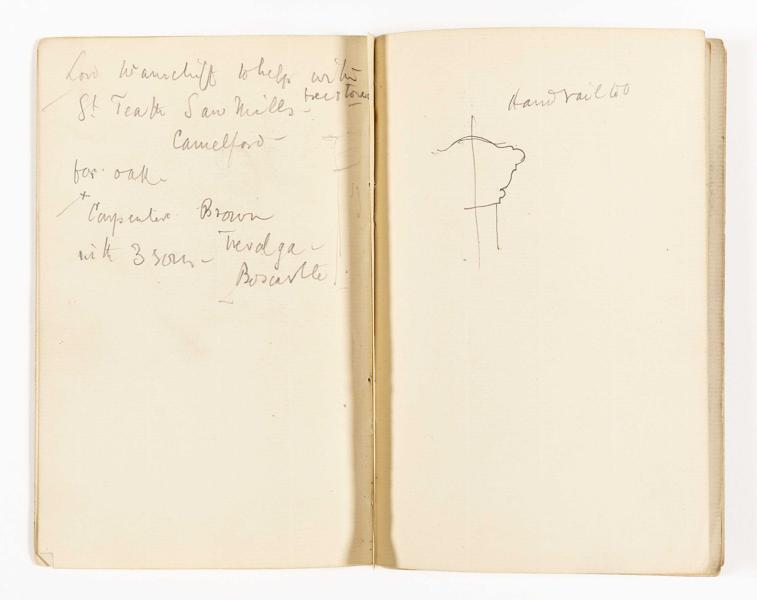 Lord Warncliff to help with
restores
St Teath Saw Mills -
Camelford -
for oak
x
Carpenter Brown
with 3 sons - Trevalga -
Boscastle
Handrail to